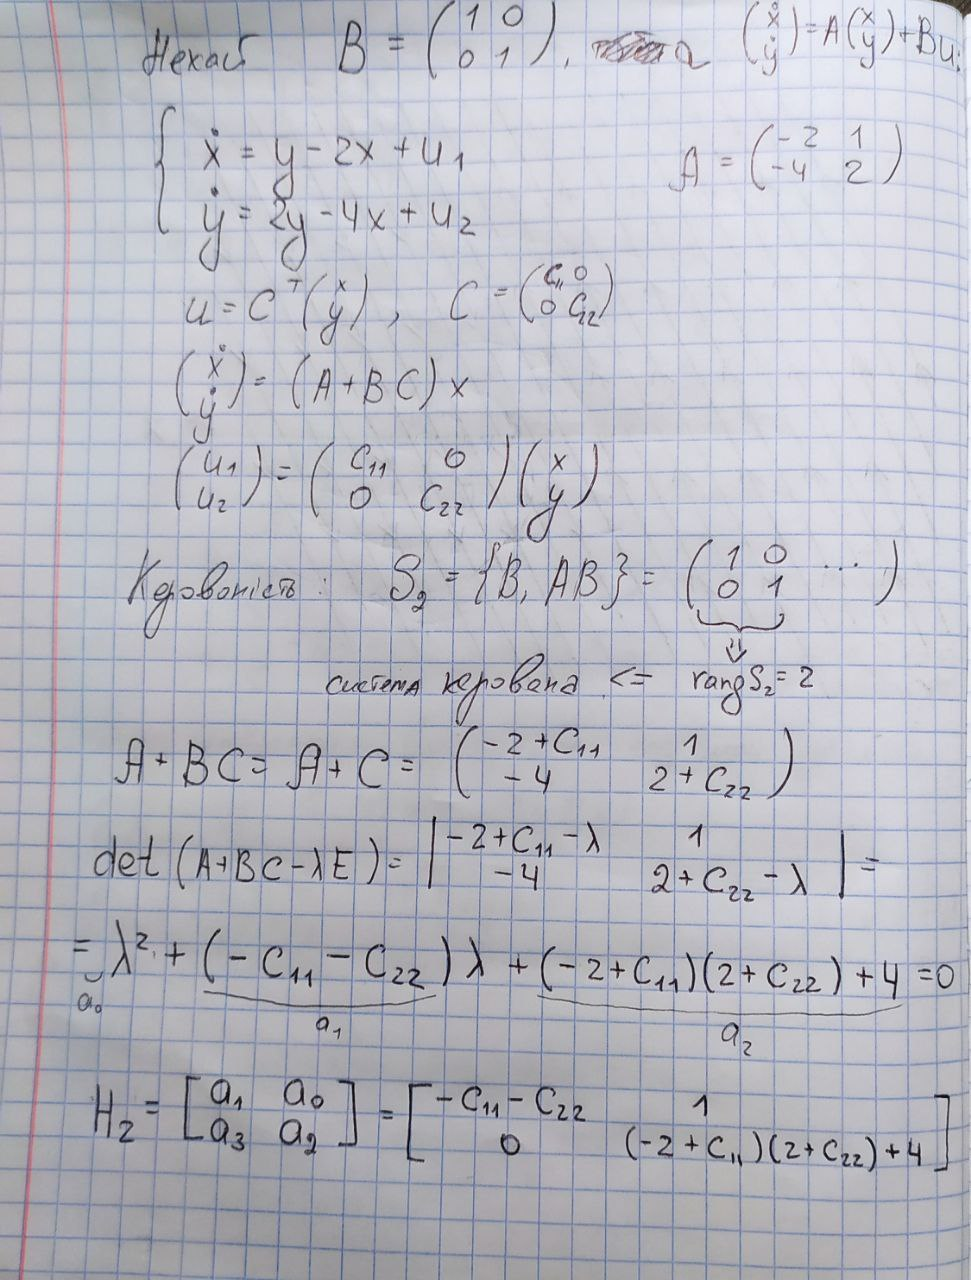 Нехай B = (1 0 0 1), а (ẋ ẏ) = A(x y) + Bu:
{ ẋ = y - 2x + u₁
ẏ = 2y - 4x + u₂
A = (-2 1 -4 2)
u = Cᵀ(x y), C = (C₁₁ 0 0 C₂₂)
(ẋ ẏ) = (A + BC) x
(u₁ u₂) = (C₁₁ 0 0 C₂₂)(x y)
Керованість: S₂ = {B, AB} = (1 0 0 1 ...)
⇓
система керована <= rang S₂ = 2
A + BC = A + C = (-2 + C₁₁ 1 -4 2 + C₂₂)
det (A + BC - λE) = |-2 + C₁₁ - λ 1 -4 2 + C₂₂ - λ| =
= λ² + (-C₁₁ - C₂₂)λ + (-2 + C₁₁)(2 + C₂₂) + 4 = 0
a₀ a₁ a₂
H₂ = [a₁ a₀ a₃ a₂] = [-C₁₁ - C₂₂ 1 0 (-2 + C₁₁)(2 + C₂₂) + 4]